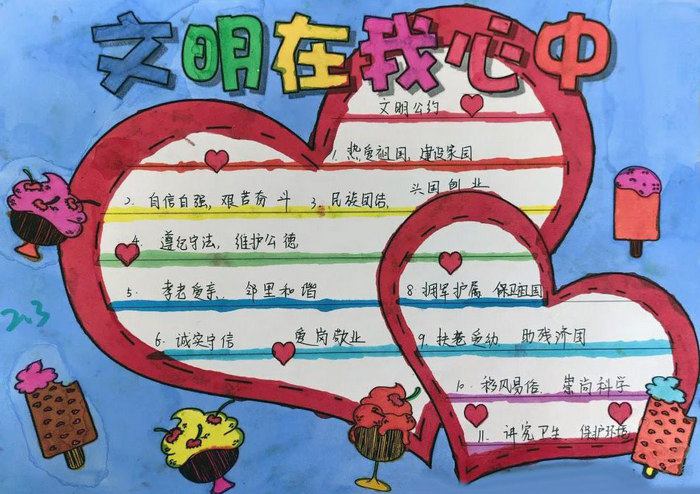 文明在我心中
文明公约
1. 热爱祖国, 建设家园
2. 自信自强, 艰苦奋斗 3. 民族团结, 兴国创业
4. 遵纪守法, 维护公德
5. 孝老爱亲, 邻里和谐
6. 诚实守信 爱岗敬业
8 拥军护属 保卫祖国
9. 扶老爱幼 助残济困
10. 移风易俗 崇尚科学
11. 讲究卫生 保护环境
2.3